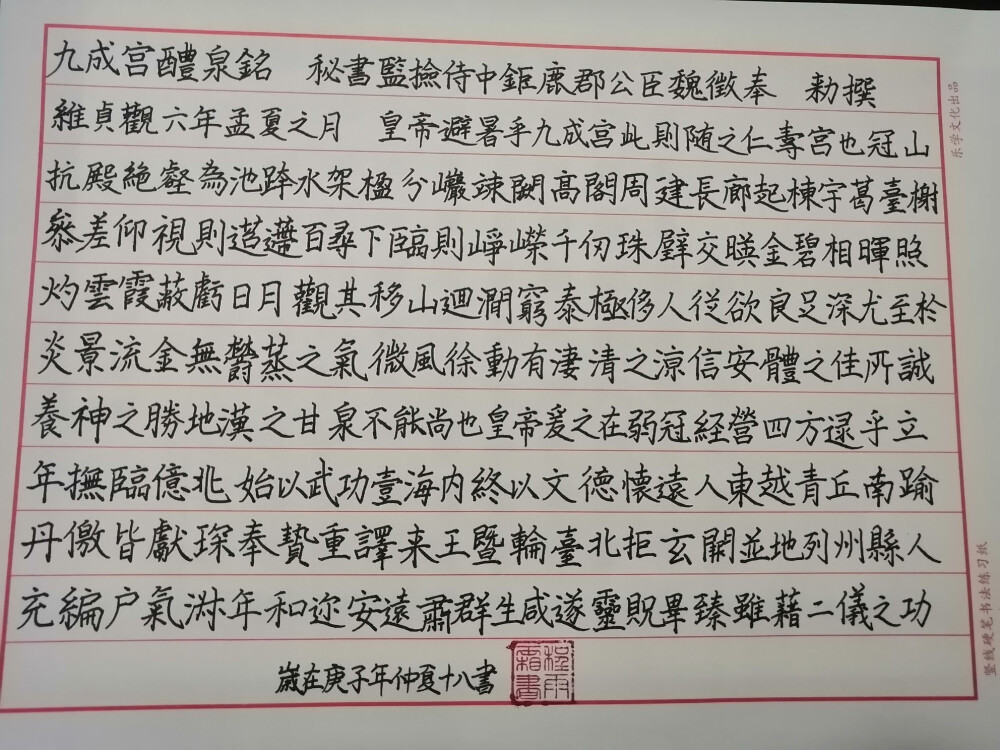 九成宫醴泉銘　秘書監撿侍中鉅鹿郡公臣魏徵奉　勑撰
維貞觀六年孟夏之月　皇帝避暑乎九成宫此則随之仁壽宫也冠山
抗殿絶壑為池跨水架楹分巗竦闕高閣周建長廊起棟宇葛臺榭
叅差仰視則迢遰百尋下臨則崢嶸千仞珠璧交暎金碧相暉照
灼雲霞蔽虧日月觀其移山迴澗窮泰極侈人從欲良足深尤至於
炎景流金無欝蒸之氣微風徐動有淒清之涼信安體之佳所誠
養神之勝地漢之甘泉不能尚也皇帝爰之在弱冠經營四方逯乎立
年撫臨億兆始以武功壹海内終以文德懷遠人東越青丘南踰
丹儌皆獻琛奉贄重譯来王暨輪臺北拒玄闕並地列州縣人
充編户氣淑年和迩安遠肅群生咸遂靈貺畢臻雖藉二儀之功
歲在庚子年仲夏十八書
乐学文化出品
竖线硬笔书法练习纸